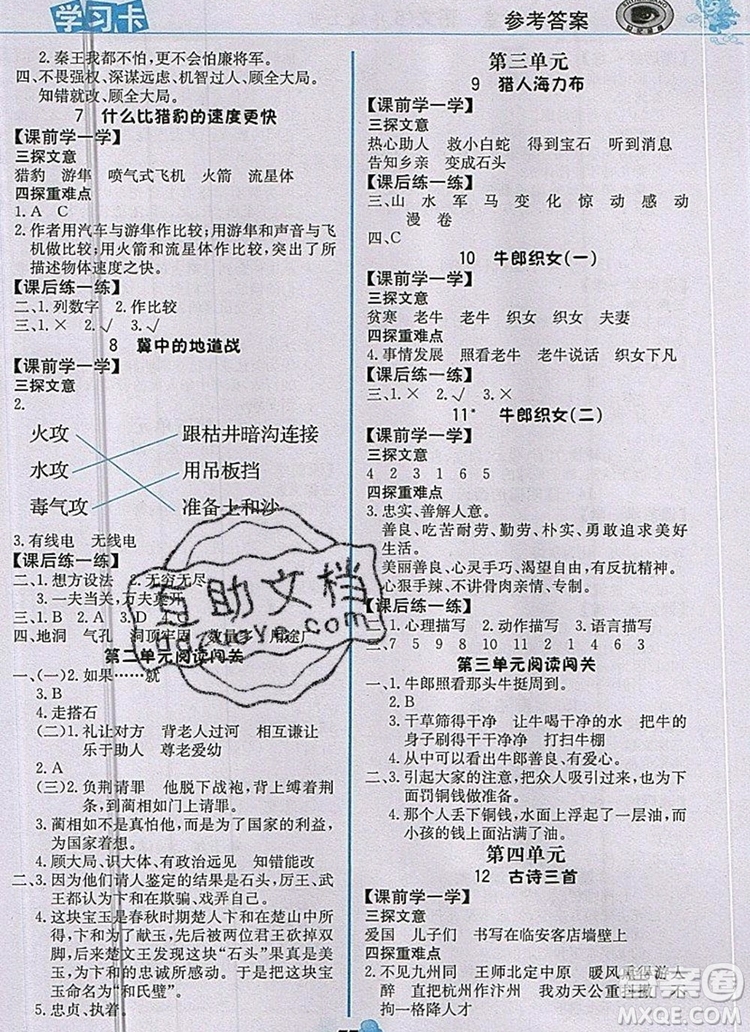 学习卡
参考答案
2. 秦王我都不怕，更不会怕廉将军。
四、不畏强权、深谋远虑、机智过人、顾全大局。
知错就改、顾全大局。
7 什么比猎豹的速度更快
【课前学一学】
三探文意
猎豹 游隼 喷气式飞机 火箭 流星体
四探重难点
1. A C
2. 作者用汽车与游隼作比较；用游隼和声音与飞
机做比较；用火箭和流星体作比较；突出了所
描述物体速度之快。
【课后练一练】
二、1. 列数字 2. 作比较
三、1. × 2. √ 3. √
8 冀中的地道战
【课前学一学】
三探文意
2.
火攻 跟枯井暗沟连接
水攻 用吊板挡
毒气攻 准备土和沙
3. 有线电 无线电
【课后练一练】
二、1. 想方设法 2. 无穷无尽
3. 一夫当关，万夫莫开
三、1. B 2. A 3. D
四、地洞 气孔 洞顶牢固 数量多 用途广
第二单元阅读闯关
一、(一)2. 如果……就
3. B
4. 走搭石
(二)1. 礼让对方 背老人过河 相互谦让
乐于助人 尊老爱幼
2. A
(三)2. 负荆请罪 他脱下战袍，背上荆条，
到蔺相如门上请罪。
3. 蔺相如不是真怕他，而是为了国家的利益，
为国家着想。
4. 顾大局、识大体、有政治远见 知错能改
二、3. 因为他们请人鉴定的结果是石头，厉王、武
王都认为卞和在欺骗、戏弄自己。
4. 这块宝玉是春秋时期楚人卞和在山中发现
的，卞和为了献玉，先后被两位楚王砍掉双
脚，楚文王发现这块“石头”果真是真正的美
玉，为表彰卞和的忠诚与执着，便将这块宝
玉命名为“和氏璧”。
5. 忠贞、执着。
第三单元
9 猎人海力布
【课前学一学】
三探文意
热心助人 救小白蛇 得到宝石 听到消息
告知乡亲 变成石头
【课后练一练】
三、山 水 军 马 变 化 惊 动 感 动
漫 卷
四、C
10 牛郎织女(一)
【课前学一学】
三探文意
贫寒 老牛 老牛 织女 织女 夫妻
四探重难点
4. 事情发展 照看老牛 老牛说话 织女下凡
【课后练一练】
三、1. × 2. √ 3. ×
11* 牛郎织女(二)
【课前学一学】
三探文意
4 2 3 1 6 5
四探重难点
3. 忠实、善解人意。
善良、吃苦耐劳、勤劳、朴实、勇敢追求美好
生活。
美丽善良、心灵手巧、渴望自由。
心狠手辣、不讲骨肉亲情、专制。
【课后练一练】
三、1. 心理描写 2. 动作描写 3. 语言描写
四、1 7 5 9 8 10 2 6 3 4
第三单元阅读闯关
一、1. 牛郎照看那头牛挺周到。
2. B
3. 干草筛得干干净净 让牛喝干净的水 把牛的
毛刷得干干净净 打扫牛棚
4. 从中可以看出牛郎善良、勤劳。
二、3. 引起大家的注意，把众人吸引到一起，为下
面罚铜钱做准备。
4. 那个人忘了水上浮起了一层油，而
小孩的钱上正好有油。
第四单元
12 古诗三首
【课前学一学】
三探文意
爱国 儿子们 书写在临安客店墙壁上
四探重难点
2. 不见九州同 王师北定中原 暖风熏得游人
醉 万马齐喑究可哀 我劝天公重抖擞，不
拘一格降人才